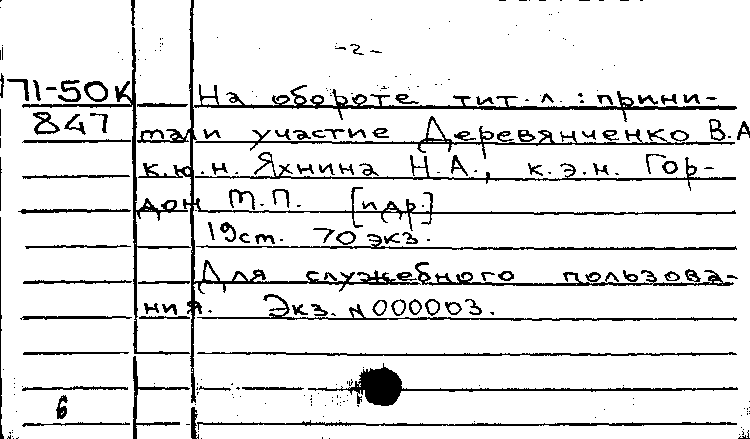 -2-
71-50К На обороте тит. л.: прини-
847 мали участие Деревянченко В.А
к.ю.н. Яхнина Н.А., к.э.н. Гор-
дон М.П. [и др.]
19 ст. 70 экз.
Для служебного пользова-
ния. Экз. N 000003.
6